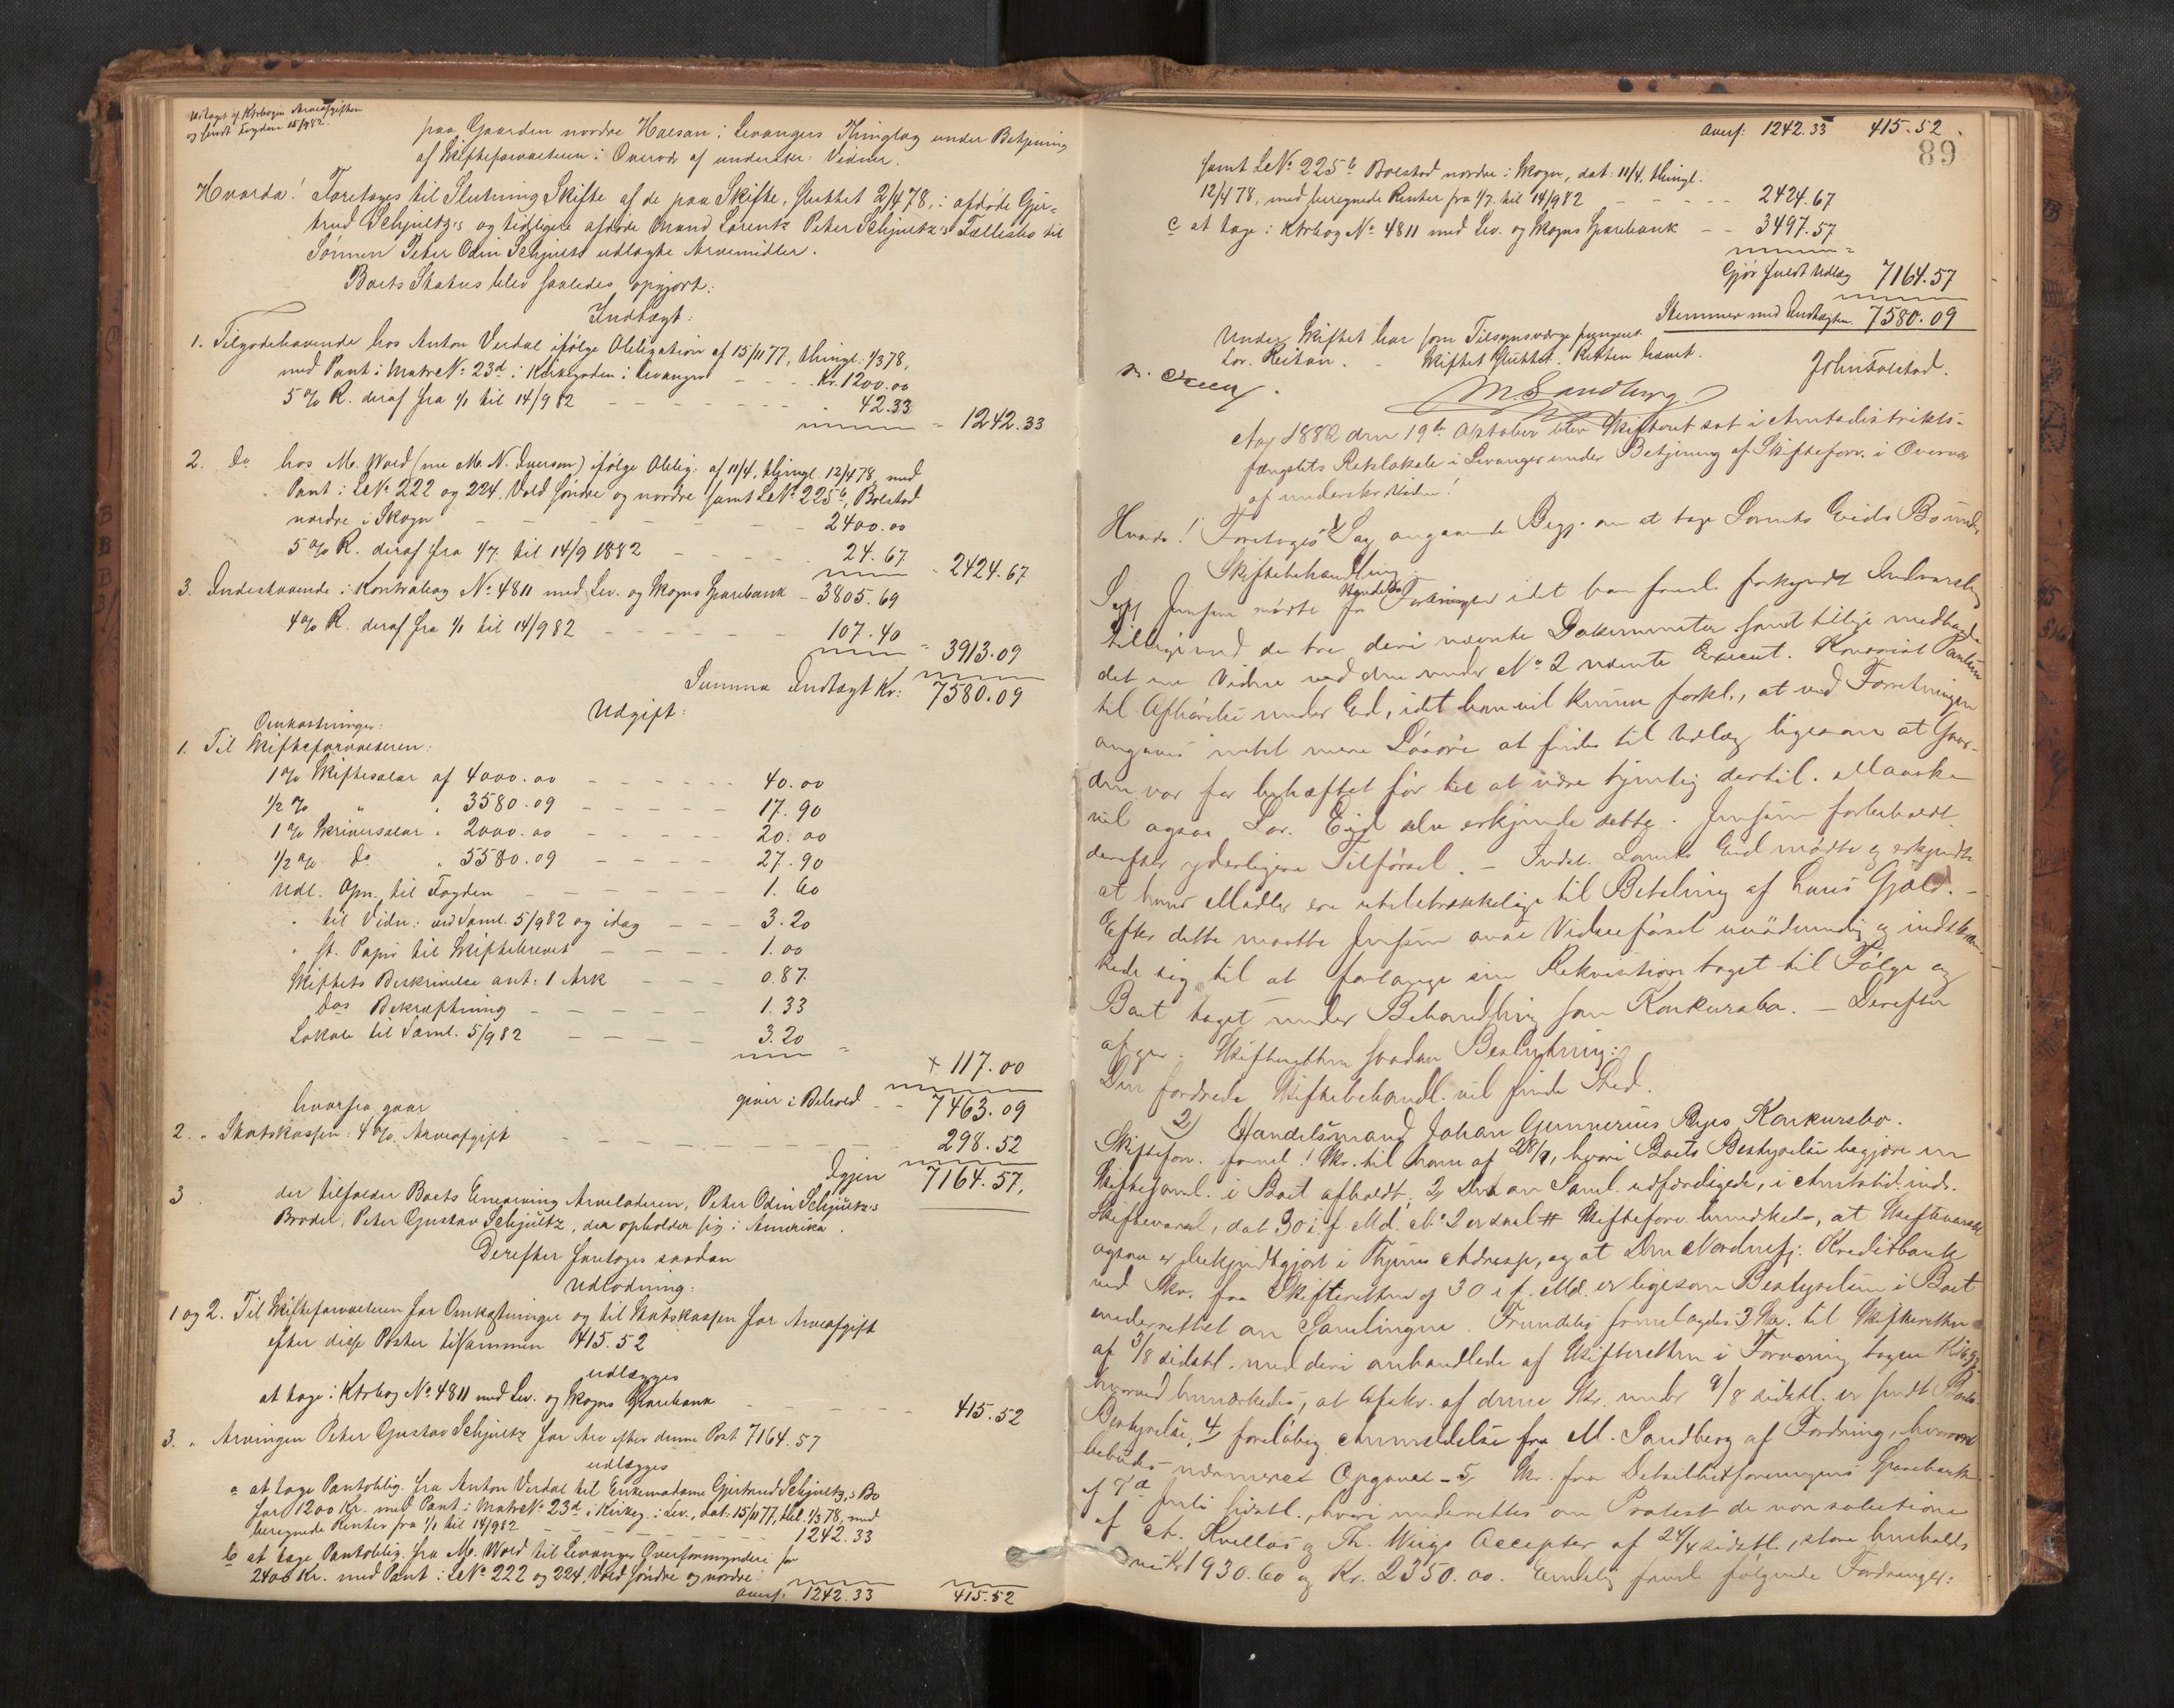 Udtagt af Ktrbogen Arveafgiften
og sendt Fogden 15/9 82.
paa Gaarden nordre Halsan i Levangers Thinglag under Betjening
af Skifteforvalteren i Overvær af underskr. Vidner.
Hvorda! Foretoges til Slutning Skifte af de paa Skifte, sluttet 2/4 78, i afdøde Gjer-
trud Schjultz's og tidligere afdøde Mand Lorentz Peter Schjultz's Fællesbo til
Sønnen Peter Odin Schjultz udlagte Arvemidler.
Boets Status blev saaledes opgjort:
Indtægt:
1. Tilgodehavende hos Anton Verdal ifølge Obligation af 15/11 77, thingl. 1/3 78,
med Pant i Matr. No 23d i Kirkegaden i Levanger - - - Kr. 1200.00
5 % R. deraf fra 1/1 til 14/9 82 - - - 42.33
= 1242.33
2. Do hos M. Wold (nu M. N. Iversen) ifølge Oblig. af 11/4, thingl. 12/4 78, med
Pant i L. No 222 og 224, Vold søndre og nordre samt L. No 225b, Bolstad
nordre i Skogn - - - 2400.00
5 % R. deraf fra 1/7 til 14/9 1882 - - - 24.67
- 2424.67
3. Indestaaende i Kontrabog No 4811 med Lev. og Skogns Sparebank - 3805.69
4 % R. deraf fra 1/1 til 14/9 82 - - - 107.40
= 3913.09
Summa Indtægt Kr: 7580.09
Udgift:
Omkostninger:
1. Til Skifteforvalteren:
1 % Skiftesalær af 4000.00 - - - 40.00
1/2 % " " 3580.09 - - - 17.90
1 % Skriversalær " 2000.00 - - - 20.00
1/2 % do " 5580.09 - - - 27.90
Udl. Opn. til Fogden - - - 1.60
" til Vidn. ved Saml. 5/9 82 og idag - - - 3.20
" st. Papir til Skiftebrevet - - - 1.00
Skiftets Beskrivelse ant. 1 Ark - - - 0.87
Dos Bekræftning - - - 1.33
Lokale til Saml. 5/9 82 - - - 3.20
+ 117.00
giver i Behold - - 7463.09
hvorfra gaar
2. " Statskassen: 4 % Arveafgift - - - 298.52
Igjen 7164.57,
3. der tilfalder Boets Enearving Arveladeren, Peter Odin Schjultz's
Broder, Peter Gustav Schjultz, der opholder sig i Amerika.
Derefter foretoges saadan
Udlodning:
1 og 2. Til Skifteforvalteren for Omkostninger og til Statskassen for Arveafgift
efter disse Poster tilsammen 415.52
udlægges
at tage i Ktrbog No 4811 med Lev. og Skogns Sparebank - - - 415.52
3. " Arvingen Peter Gustav Schjultz for Arv efter denne Post 7164.57
udlægges
a at tage Pantoblig. fra Anton Verdal til Enkemadame Gjertrud Schjultz's Bo
for 1200 Kr. med Pant i Matr. No 23d i Kirkeg. i Lev., dat. 15/11 77, thl. 1/3 78, med
beregnede Renter fra 1/1 til 14/9 82 - - - 1242.33
b at tage Pantoblig. fra M. Wold til Levanger Overformynderi for
2400 Kr. med Pant i L. No 222 og 224, Vold søndre og nordre
Overf: 1242.33 415.52
Overf: 1242.33 415.52.
89
samt L. No 225b Bolstad nordre i Skogn, dat. 11/4, thingl.
12/4 78, med beregnede Renter fra 1/7 til 14/9 82 - - - 2424.67
c at tage i Ktrbog No 4811 med Lev. og Skogns Sparebank - - 3497.57
Gjør fuldt Udlæg 7164.57
Stemmer med Indtægten 7580.09
Under Skiftet har som Tilsynsværge fungeret
Lor. Reitan. - Skiftet sluttet. Retten hævet.
M. Sandberg.
John Falstad.
Aar 1882 den 19de Oktober blev Skifteret sat i Amtsdistrikts-
fængslets Retslokale i Levanger under Betjening af Skifteforv. i Overvær
af underskr. Vidner!
Hvorda! Foretoges 1) Sag angaaende Begj. om at tage Lorents Eids Bo under
Skiftebehandling.
Sagf. Jensen mødte for Handelsm. idet han freml. forkyndt Indvarsling
tilligemed de tre deri nævnte Dokumenter samt tillige medhavde
det ene Vidne ved den under No 2 nævnte Execut.
til Afhørelse under Ed, idet han vil kunne forkl., at ved Forretningen
angaves intet mere Løsøre at findes til Udlæg ligesom at Gaar-
den var for behæftet før til at være tjenlig dertil. Maaske
vil ogsaa Lor. Eid selv erkjende dette. Jensen forbeholdt
derefter yderligere Tilførsel. - Indst. Lorents Eid mødte og erkjendte
at hans Midler ere utilstrækkelige til Betaling af hans Gjæld. -
Efter dette maatte Jensen anse Vidneførsel unødvendig og indskræn-
kede sig til at forlange sin Rekvisition taget til Følge og
Boet taget under Behandling som Konkursbo. - Derefter
afgav Skifteretten saadan Beslutning:
Den fordrede Skiftebehandl. vil finde Sted.
2) Handelsmand Johan Gunnerius Ryes Konkursbo.
Skifteforv. freml. 1 Skr. til ham af 28/9, hvori Boets Bestyrelse begjærer en
Skiftesaml. i Boet afholdt, 2, Den om Saml. udfærdigede, i Amtstid. inds.
Skiftevarsel, dat. 30 i f. Md. Skifteforv. bemærkede, at Skiftevarsel
ogsaa er bekjendtgjort i Thjems Adresse, og at Den Nordenfj. Kreditbank
ved Skr. fra Skifteretten af 30 i f. Md. er ligesom Bestyrelsen i Boet
underrettet om Samlingen. Fremdeles fremlagdes 3 Skr. til Skifteretten
af 5/8 sidstl. med deri omhandlede af Skifteretten i Forvaring tagen
hvorved bemærkedes, at Afskr. af denne Skr. under 9/8 sidstl. er sendt Boets
Bestyrelse, 4, foreløbig Anmeldelse fra M. Sandberg af Fordring, hvorom
bebudes nærmere Opgaver - 5, Skr. fra Detaillistforeningens Sparebank
af 7de Juli sidstl., hvori underrettes om Protest de non solutione
af A. Kvellos og Th. Wiigs Accepter af 24/4 sidstl., store henholds-
vis Kr. 1930.60 og Kr. 2350.00. Endelig freml. følgende Fordringer: